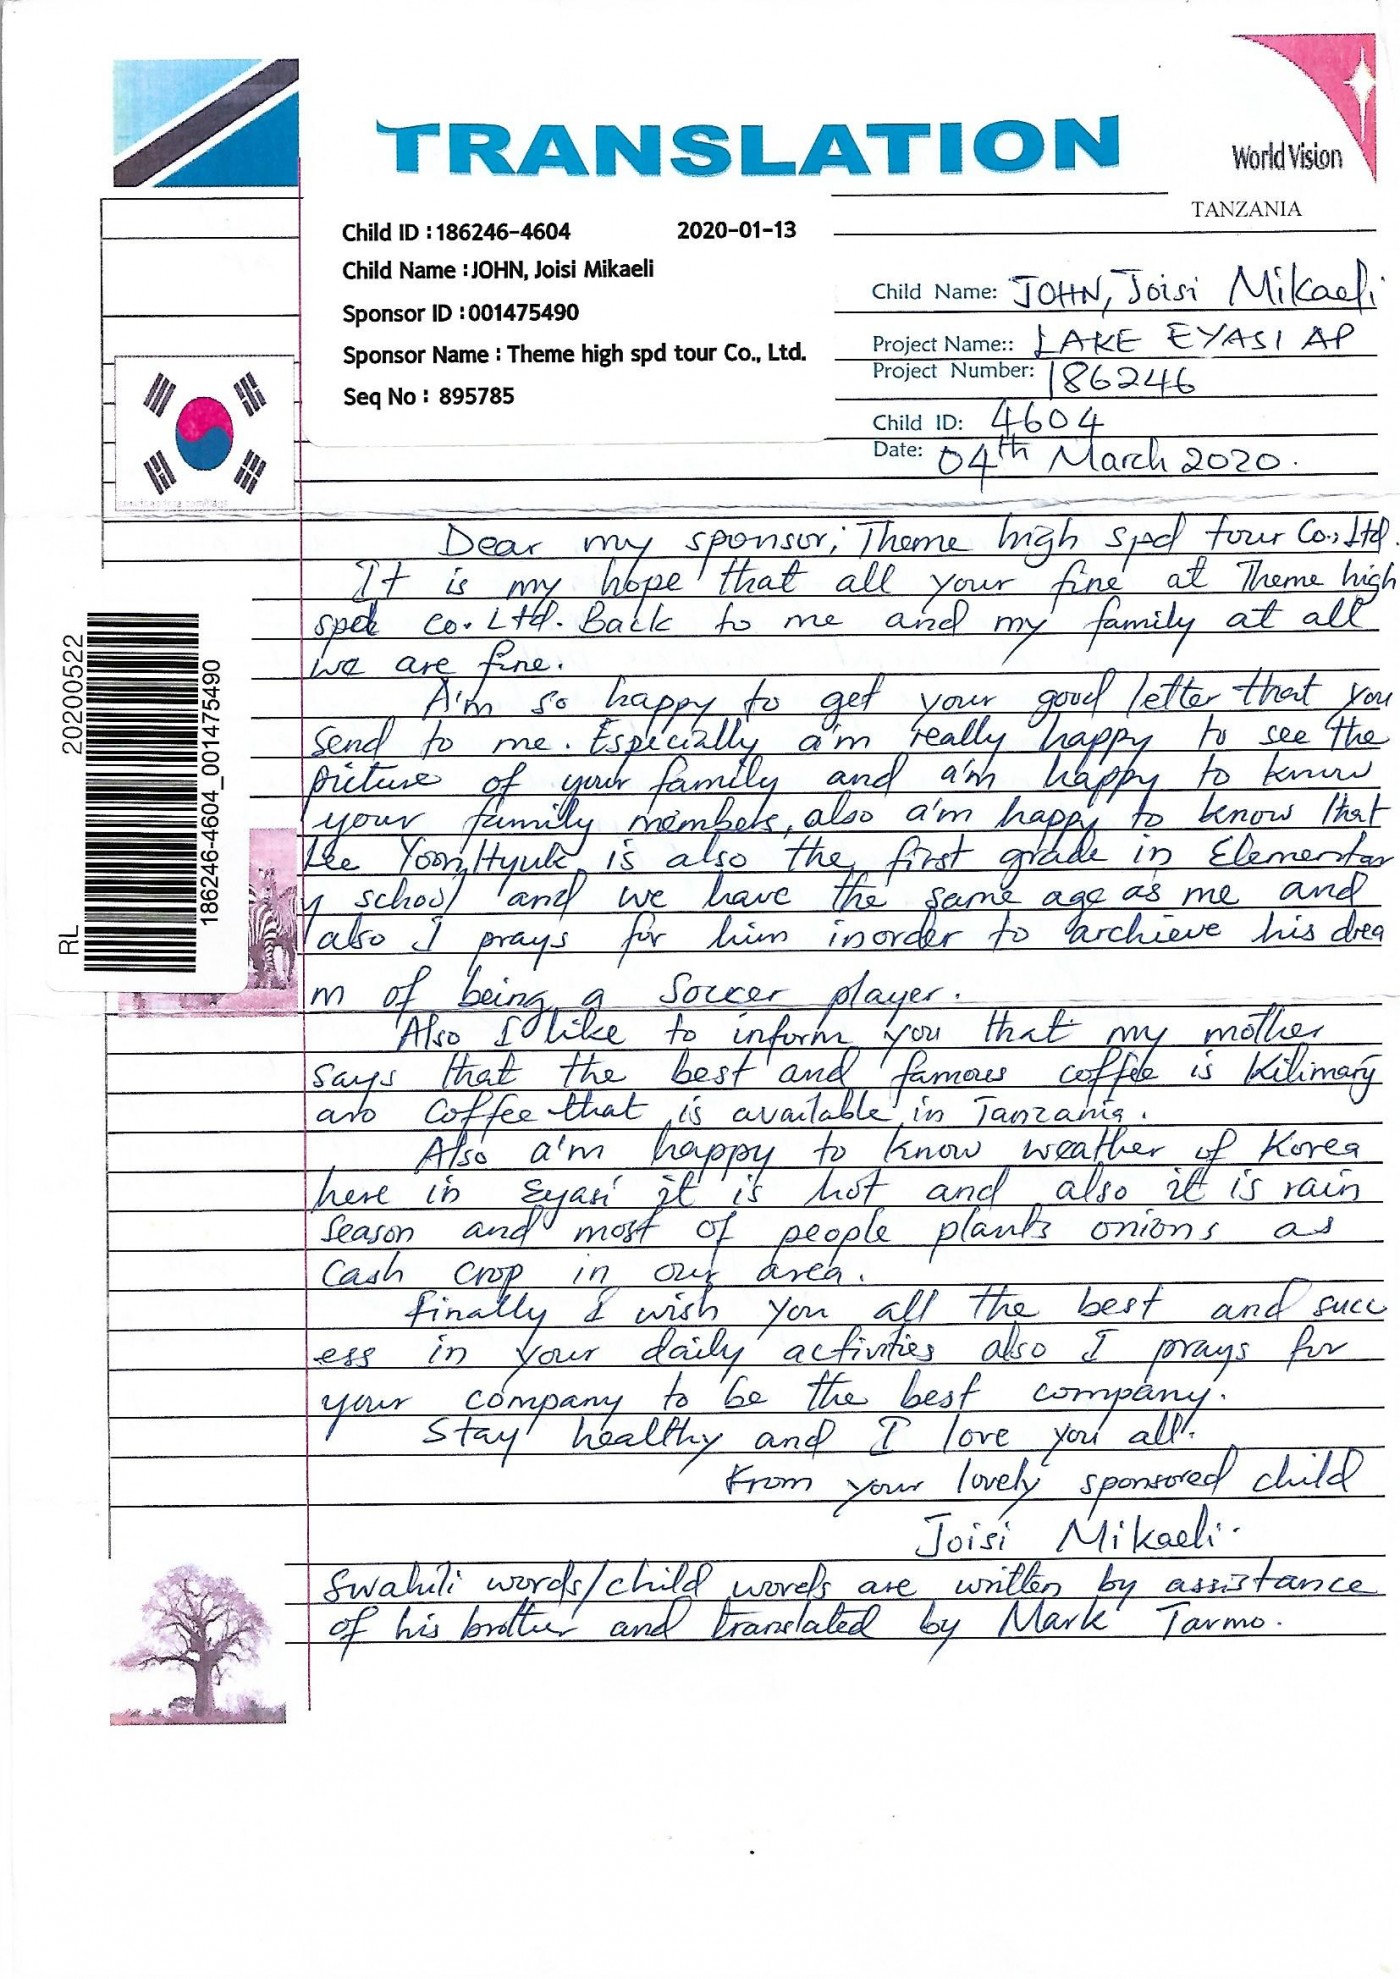 TRANSLATION
World Vision
TANZANIA
Child ID : 186246-4604 2020-01-13
Child Name : JOHN, Joisi Mikaeli
Sponsor ID : 001475490
Sponsor Name : Theme high spd tour Co., Ltd.
Seq No : 895785
Child Name: JOHN, Joisi Mikaeli
Project Name:: LAKE EYASI AP
Project Number: 186246
Child ID: 4604
Date: 04th March 2020.
RL 20200522
186246-4604_001475490
Dear my sponsor; Theme high spd tour Co., Ltd.
It is my hope that all your fine at Theme high
spd co. Ltd. Back to me and my family at all
we are fine.
A'm so happy to get your good letter that you
send to me. Especially a'm really happy to see the
picture of your family and a'm happy to know
your family members, also a'm happy to know that
Lee Yoon Hyuk is also the first grade in Elementar
y school and we have the same age as me and
also I prays for him inorder to archieve his drea
m of being a Soccer player.
Also I like to inform you that my mother
says that the best and famous coffee is Kilimanj
aro Coffee that is available in Tanzania.
Also a'm happy to know weather of Korea
here in Eyasi it is hot and also it is rain
season and most of people plants onions as
cash crop in our area.
Finally I wish you all the best and succ
ess in your daily activities also I prays for
your company to be the best company.
Stay healthy and I love you all.
From your lovely sponsored child
Joisi Mikaeli.
Swahili words/child words are written by assistance
of his brother and translated by Mark Tarmo.